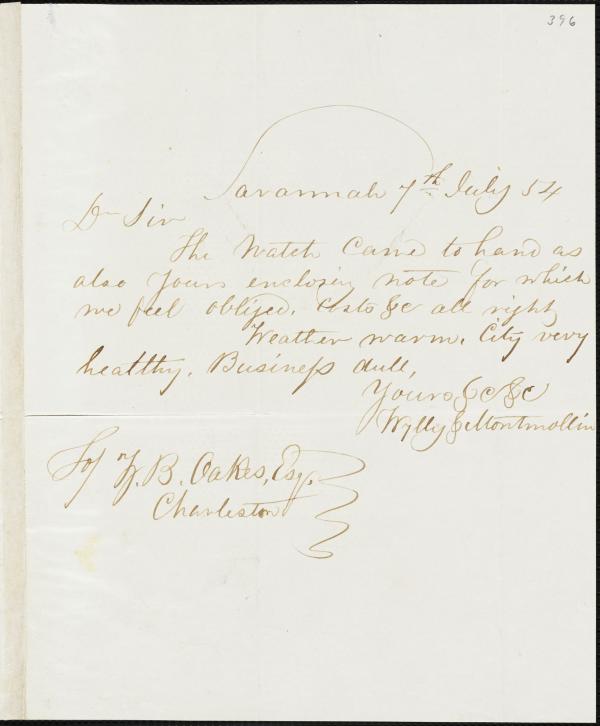 396
Savannah 7th July 54
Dr Sir
The Watch Came to hand as
also Yours enclosing note for which
we feel obliged. &c all right
Weather warm. City very
healthy. Business dull,
Yours &c &c
Wylly & Montmollin
Z. B. Oakes, Esq.
Charleston